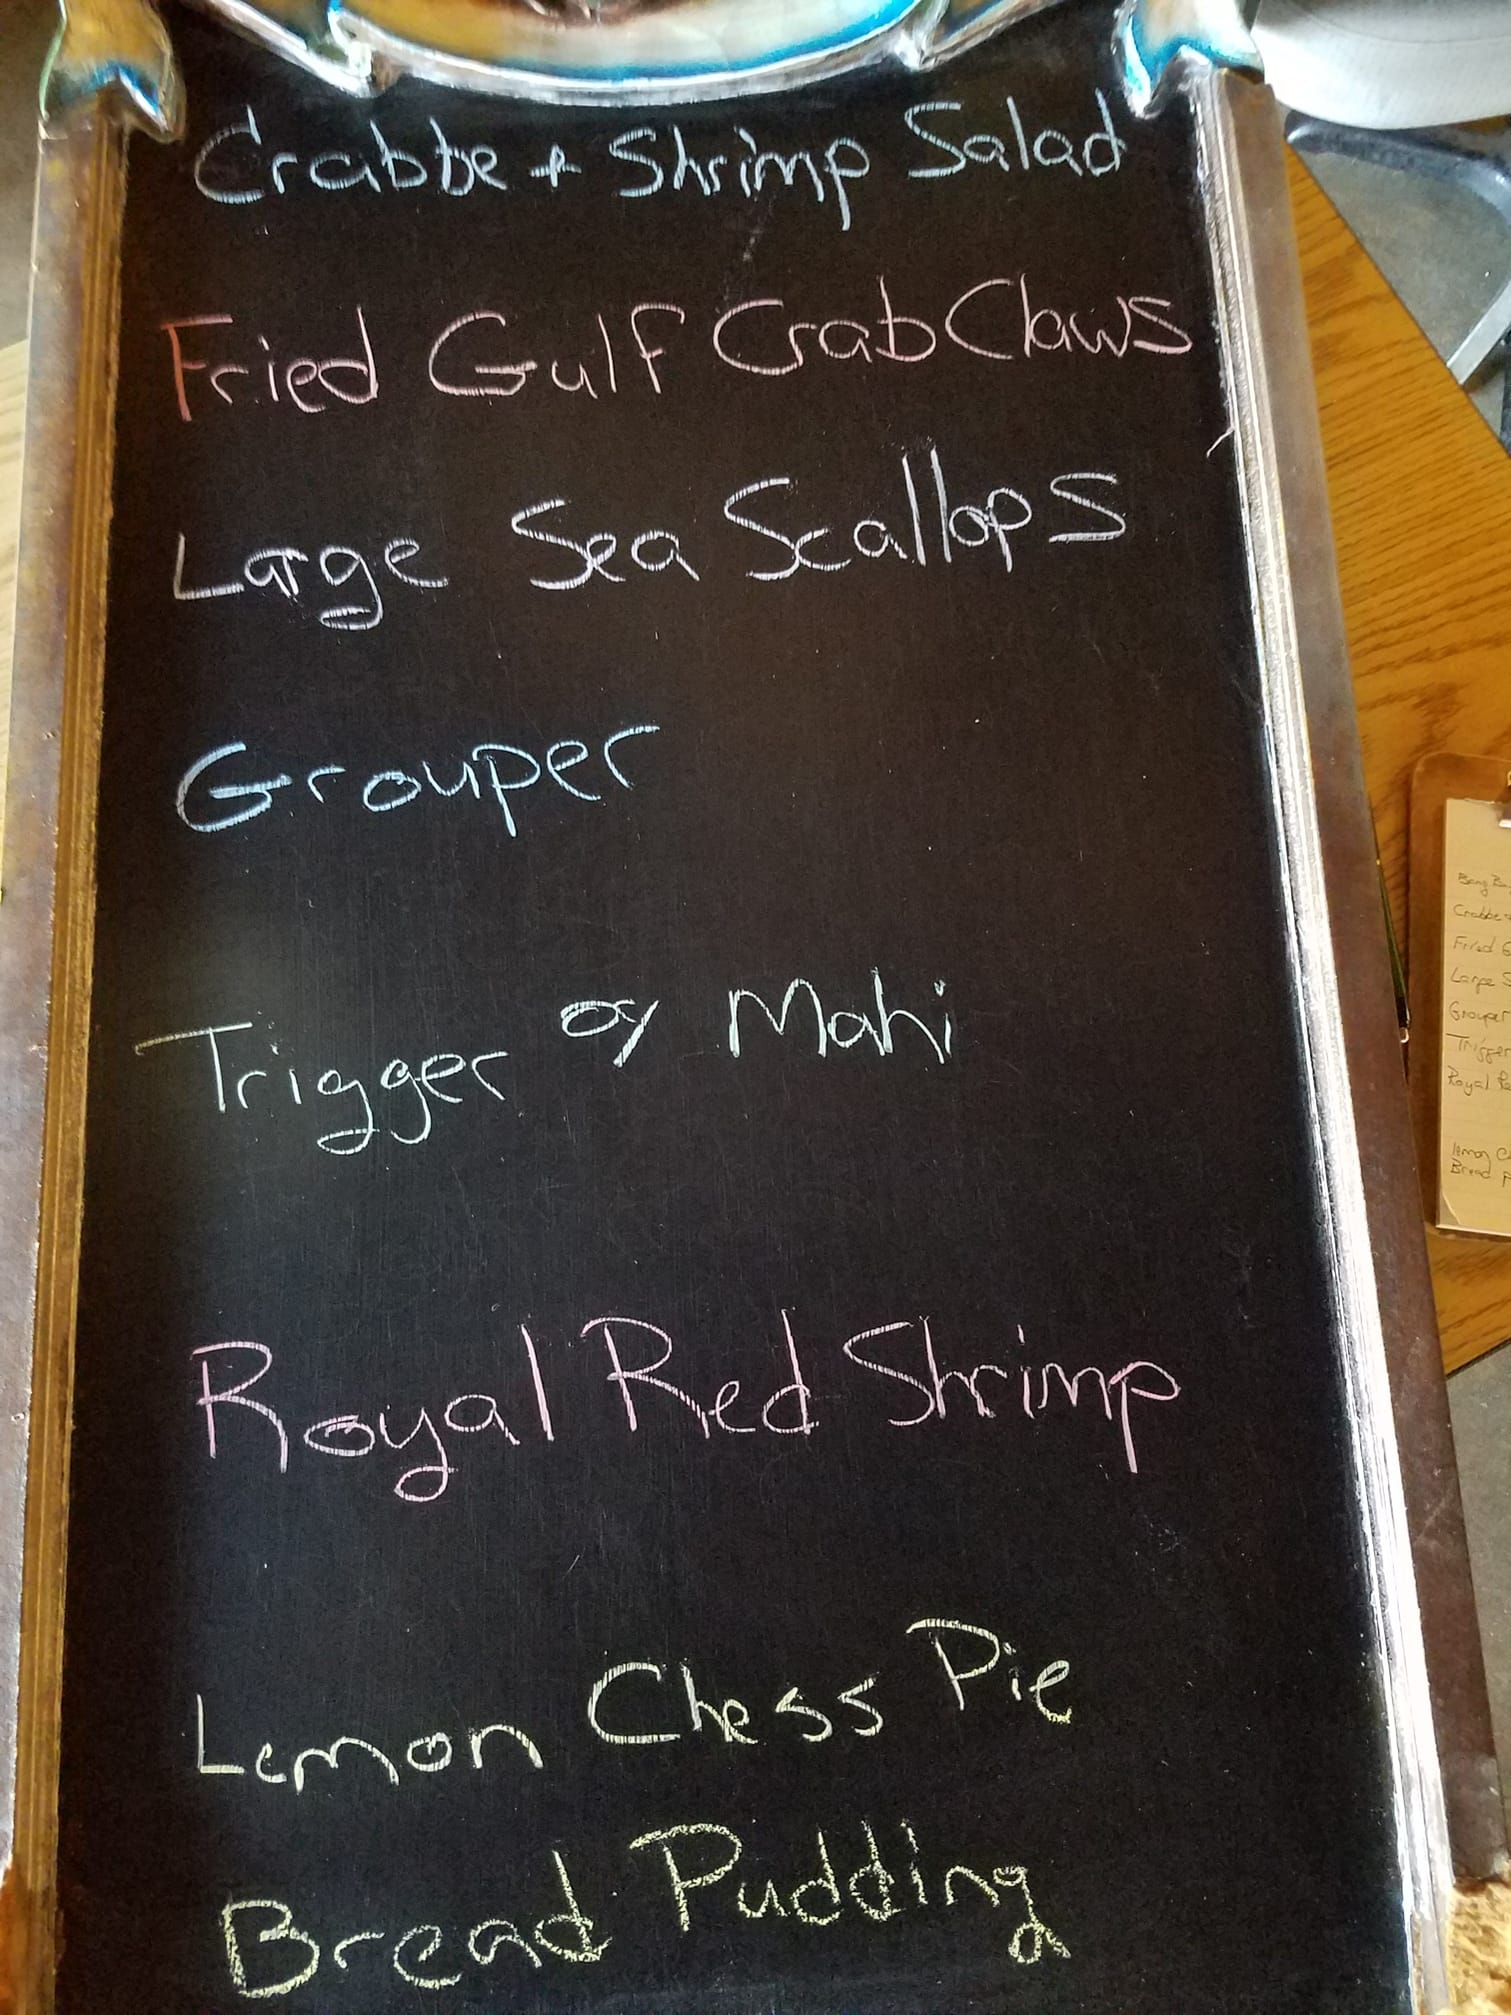 Crabbe + Shrimp Salad
Fried Gulf Crab Claws
Large Sea Scallops
Grouper
Trigger or Mahi
Royal Red Shrimp
Lemon Chess Pie
Bread Pudding
Bang
Crabbe +
Fried G
Large S
Grouper
Trigger
Royal Re
lemon C
Bread P